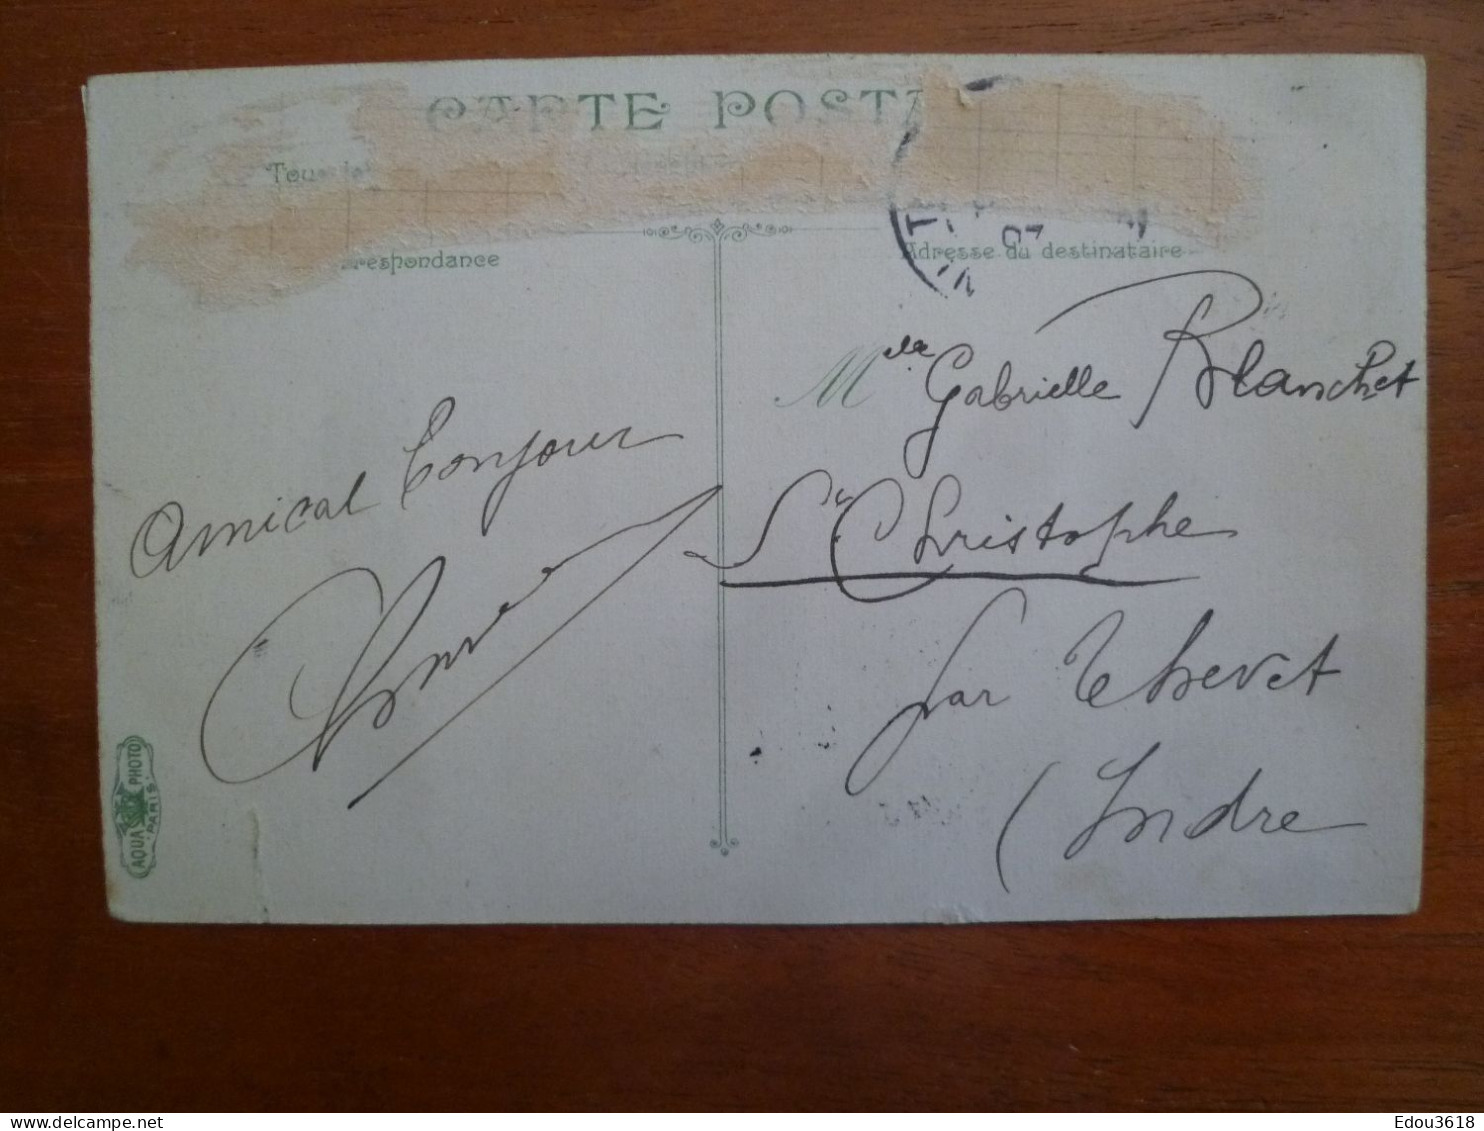 CARTE POSTA
Tou
respondance
Adresse du destinataire
07
Amical bonjour
Mlle Gabrielle Blanchet
St Christophe
par Thevet
(Indre
AQUA PHOTO
PARIS
delcampe.net
Edou3618